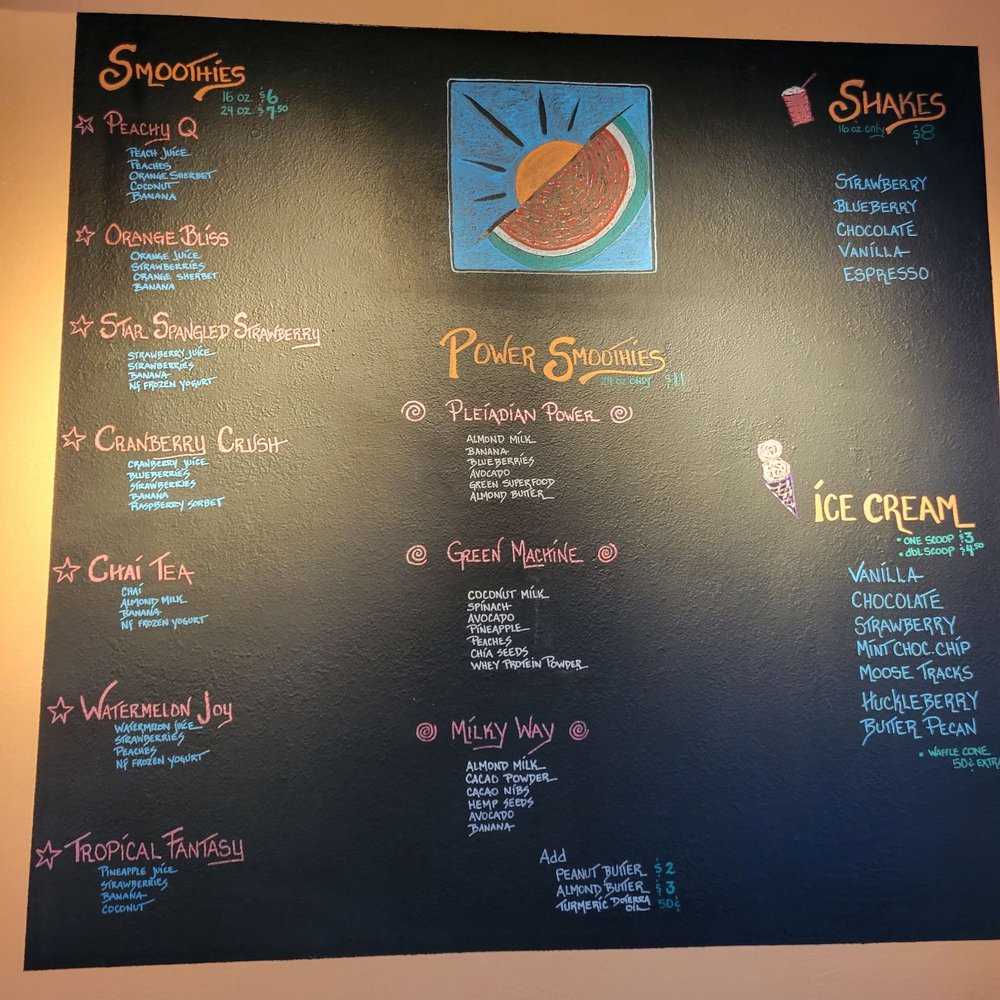 Smoothies
16 oz. $6
24 oz. $7.50
Peachy Q
Peach Juice
Peaches
Orange Sherbet
Coconut
Banana
Orange Bliss
Orange Juice
Strawberries
Orange Sherbet
Banana
Star Spangled Strawberry
Strawberry Juice
Strawberries
Banana
NF Frozen Yogurt
Cranberry Crush
Cranberry Juice
Blueberries
Strawberries
Banana
Raspberry Sorbet
Chai Tea
Chai
Almond Milk
Banana
NF Frozen Yogurt
Watermelon Joy
Watermelon Juice
Strawberries
Peaches
NF Frozen Yogurt
Tropical Fantasy
Pineapple Juice
Strawberries
Banana
Coconut
Power Smoothies
24 oz only $11
Pleiadian Power
Almond Milk
Banana
Blueberries
Avocado
Green Superfood
Almond Butter
Green Machine
Coconut Milk
Spinach
Avocado
Pineapple
Peaches
Chia Seeds
Whey Protein Powder
Milky Way
Almond Milk
Cacao Powder
Cacao Nibs
Hemp Seeds
Avocado
Banana
Add
Peanut Butter $2
Almond Butter $3
Turmeric doTerra Oil 50¢
Shakes
16 oz only $8
Strawberry
Blueberry
Chocolate
Vanilla
Espresso
Ice Cream
• One Scoop $3
• dbl Scoop $4.50
Vanilla
Chocolate
Strawberry
Mint Choc. Chip
Moose Tracks
Huckleberry
Butter Pecan
• Waffle Cone
50¢ Extra